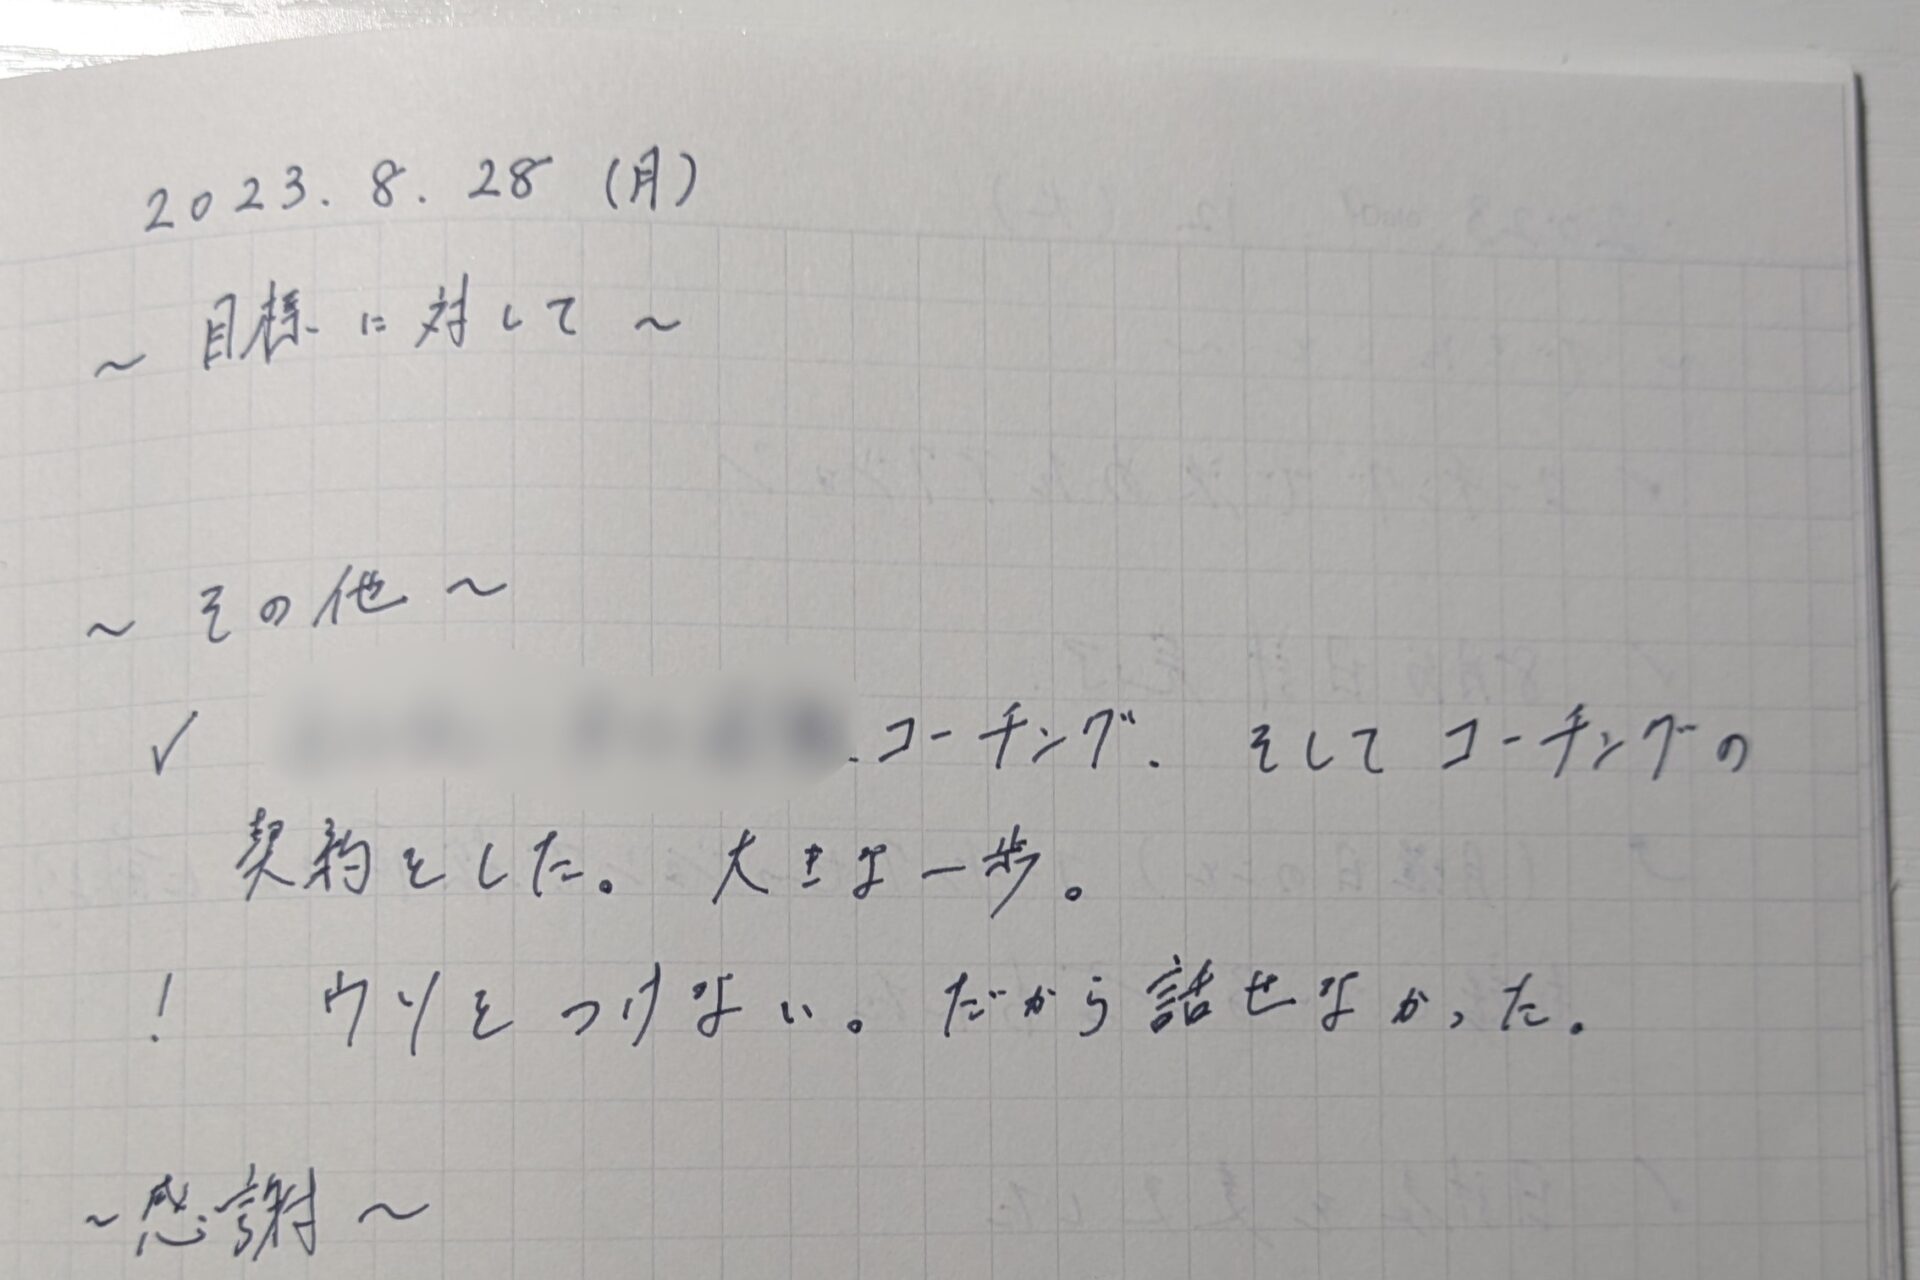 2023.8.28 (月)
～ 目標に対して ～
～ その他 ～
✓ .コーチング. そしてコーチングの
契約をした。 大きな一歩。
! ウソをつけない。だから話せなかった。
～感謝～